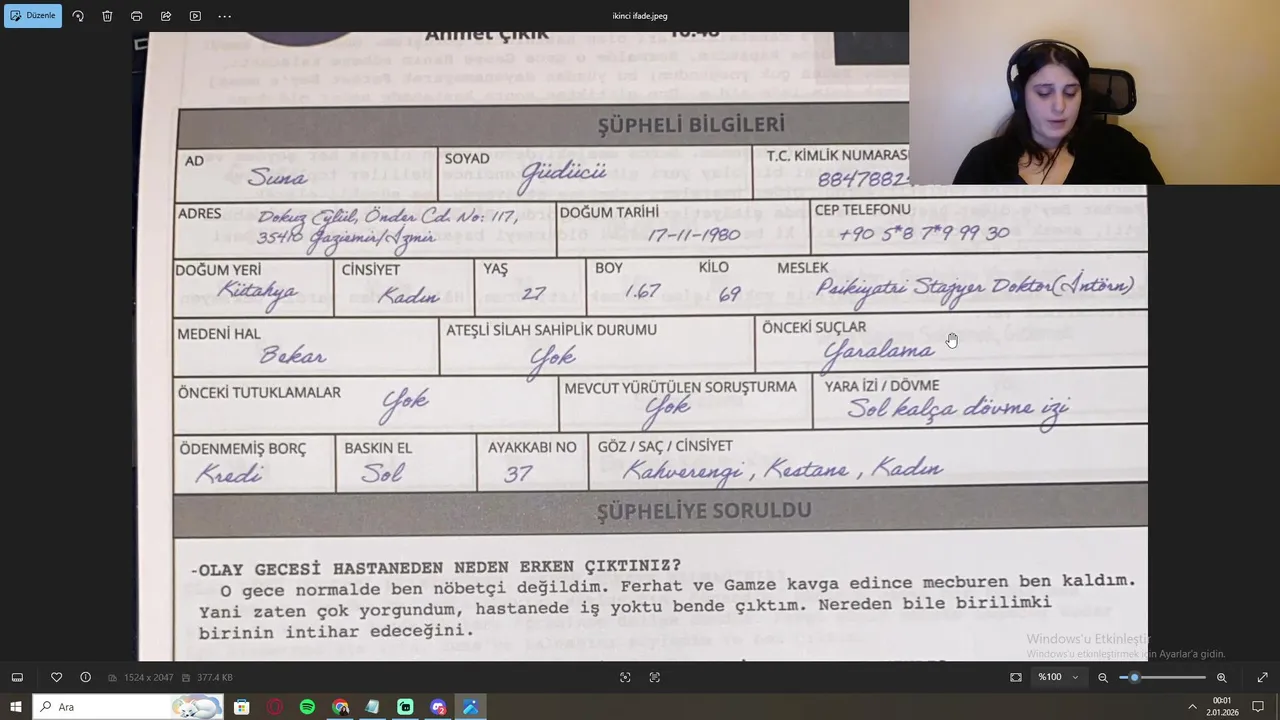 Düzenle
ikinci ifade.jpeg
Ahmet Çıkık 16:48
ŞÜPHELİ BİLGİLERİ
AD
Suna
SOYAD
Güdücü
T.C. KİMLİK NUMARASI
AD
ADRES
Dokuz Eylül, Önder Cd. No: 117,
35410 Gaziemir/İzmir
DOĞUM TARİHİ
17-11-1980
CEP TELEFONU
+90 5*8 7*9 99 30
DOĞUM YERİ
Kütahya
CİNSİYET
Kadın
YAŞ
27
BOY
1.67
KİLO
69
MESLEK
Psikiyatri Stajyer Doktor(İntörn)
MEDENİ HAL
Bekar
ATEŞLİ SİLAH SAHİPLİK DURUMU
Yok
ÖNCEKİ SUÇLAR
Yaralama
ÖNCEKİ TUTUKLAMALAR
Yok
MEVCUT YÜRÜTÜLEN SORUŞTURMA
Yok
YARA İZİ / DÖVME
Sol kalça dövme izi
ÖDENMEMİŞ BORÇ
Kredi
BASKIN EL
Sol
AYAKKABI NO
37
GÖZ / SAÇ / CİNSİYET
Kahverengi, Kestane, Kadın
ŞÜPHELİYE SORULDU
-OLAY GECESİ HASTANEDEN NEDEN ERKEN ÇIKTINIZ?
O gece normalde ben nöbetçi değildim. Ferhat ve Gamze kavga edince mecburen ben kaldım.
Yani zaten çok yorgundum, hastanede iş yoktu bende çıktım. Nereden bile birilimki
birinin intihar edeceğini.
Windows'u Etkinleştir
Windows'u etkinleştirmek için Ayarlar'a gidin.
1524 x 2047 377.4 KB
%100
Ara
00:01
2.01.2026